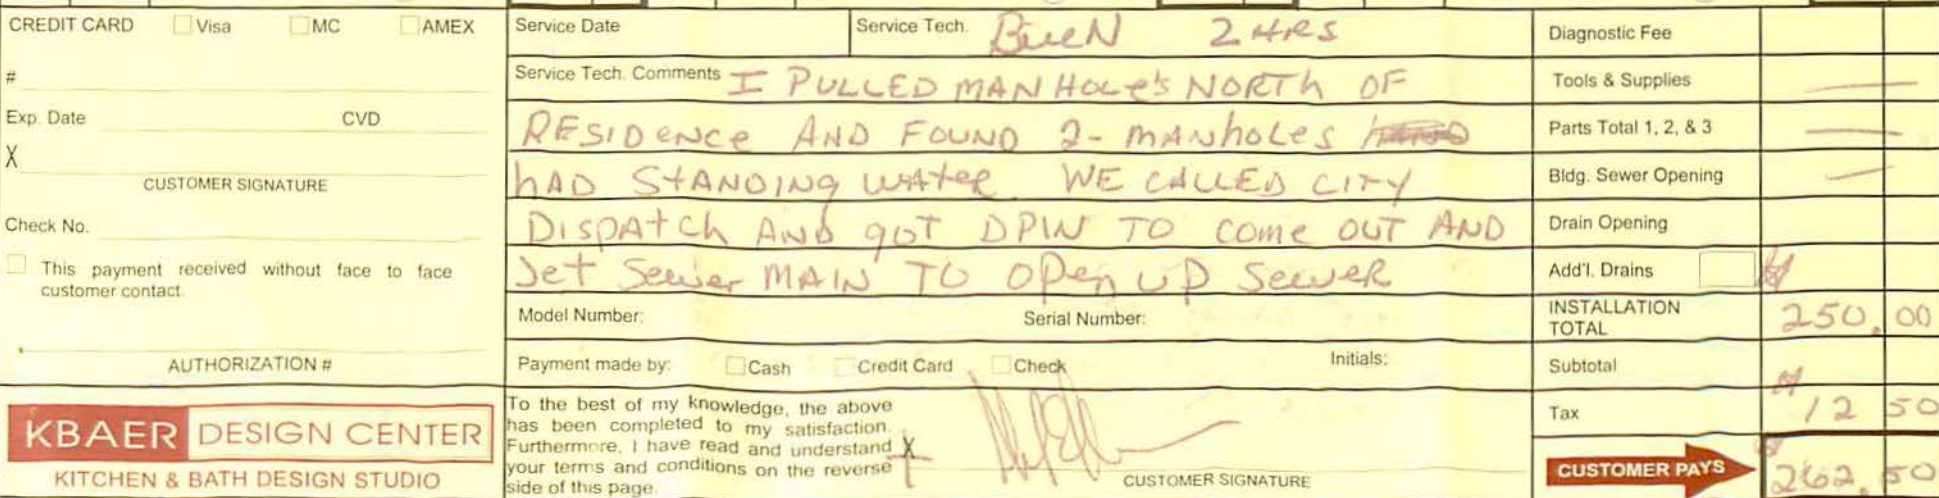 CREDIT CARD Visa MC AMEX
#
Exp. Date CVD
X
CUSTOMER SIGNATURE
Check No.
This payment received without face to face
customer contact.
AUTHORIZATION #
KBAER DESIGN CENTER
KITCHEN & BATH DESIGN STUDIO
Service Date Service Tech. 2 HRS
Service Tech. Comments I PULLED MANHOLE'S NORTH OF
RESIDENCE AND FOUND 2- MANHOLES
HAD STANDING WATER. WE CALLED CITY
DISPATCH AND GOT DPIW TO COME OUT AND
JET SEWER MAIN TO OPEN UP SEWER
Model Number: Serial Number:
Payment made by: Cash Credit Card Check Initials:
To the best of my knowledge, the above
has been completed to my satisfaction.
Furthermore, I have read and understand
your terms and conditions on the reverse
side of this page.
X
CUSTOMER SIGNATURE
Diagnostic Fee
Tools & Supplies —
Parts Total 1, 2, & 3 —
Bldg. Sewer Opening —
Drain Opening
Add'l. Drains
INSTALLATION
TOTAL 250.00
Subtotal
Tax 12 50
CUSTOMER PAYS 262.50